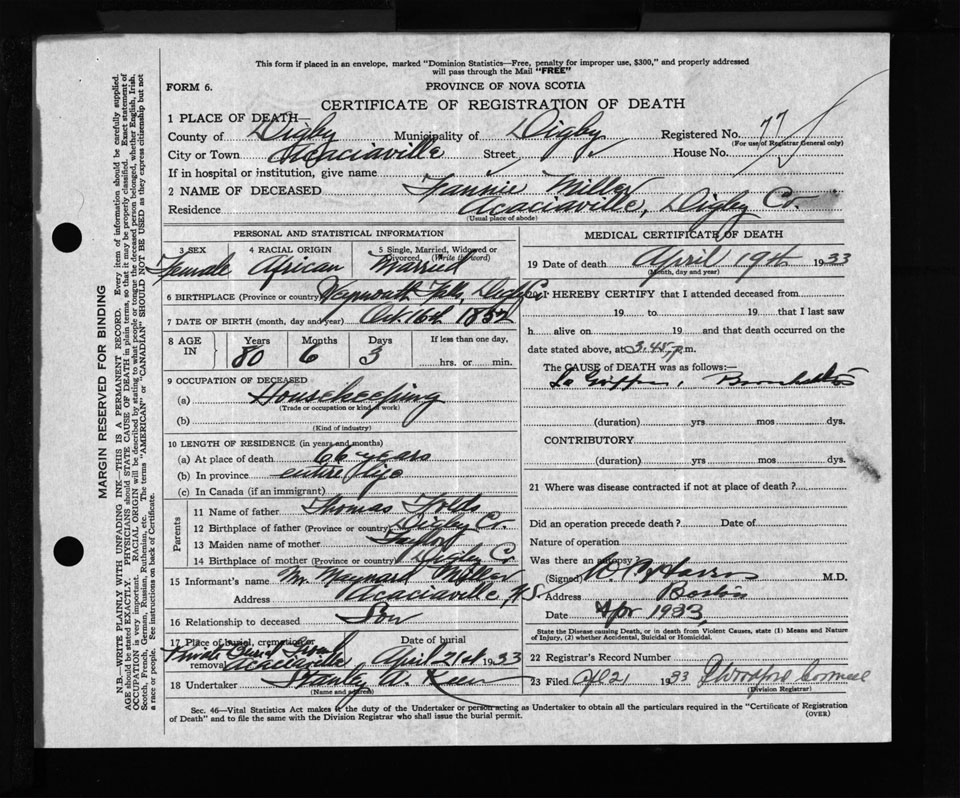 This form if placed in an envelope, marked "Dominion Statistics—Free, penalty for improper use, $300," and properly addressed
will pass through the Mail "FREE"
FORM 6.
PROVINCE OF NOVA SCOTIA
CERTIFICATE OF REGISTRATION OF DEATH
1 PLACE OF DEATH—
County of Digby Municipality of Digby Registered No. 77
(For use of Registrar General only)
City or Town Acaciaville Street House No.
If in hospital or institution, give name
2 NAME OF DECEASED Fannie Miller
Residence Acaciaville, Digby Co.
(Usual place of abode)
PERSONAL AND STATISTICAL INFORMATION
3 SEX 4 RACIAL ORIGIN 5 Single, Married, Widowed or
Divorced, (Write the word)
Female African Married
6 BIRTHPLACE (Province or country) Weymouth Falls, Digby Co.
7 DATE OF BIRTH (month, day and year) Oct. 16th 1852
8 AGE IN Years Months Days If less than one day,
80 6 3 hrs. or min.
9 OCCUPATION OF DECEASED
(a) Housekeeping
(Trade or occupation or kind of work)
(b)
(Kind of industry)
10 LENGTH OF RESIDENCE (in years and months)
(a) At place of death 66 years
(b) In province entire life
(c) In Canada (if an immigrant)
Parents
11 Name of father Thomas
12 Birthplace of father (Province or country) Digby Co.
13 Maiden name of mother
14 Birthplace of mother (Province or country) Digby Co
15 Informant's name Mr. Maynard Miller
Address Acaciaville, N.S
16 Relationship to deceased Son
17 Place of burial, cremation or Date of burial
Private Burial
removal Acaciaville April 21st 1933
18 Undertaker Stanley A.
(Name and address)
MEDICAL CERTIFICATE OF DEATH
19 Date of death April 19th 1933
(Month, day and year)
I HEREBY CERTIFY that I attended deceased from
19 to 19 that I last saw
h alive on 19 and that death occurred on
date stated above, at 3.45 p.m.
The CAUSE of DEATH was as follows:—
La Grippe,
(duration) yrs mos dys.
CONTRIBUTORY
(duration) yrs mos dys.
21 Where was disease contracted if not at place of death?
Did an operation precede death? Date of
Nature of operation
Was there an autopsy?
(Signed) M.D.
Address
Date Apr 1933,
State the Disease causing Death, or in death from Violent Causes, state (1) Means and Nature
of Injury, (2) whether Accidental, Suicidal or Homicidal.
22 Registrar's Record Number
23 Filed 21 1933
(Division Registrar)
Sec. 46—Vital Statistics Act makes it the duty of the Undertaker or person acting as Undertaker to obtain all the particulars required in the "Certificate of Registration
of Death" and to file the same with the Division Registrar who shall issue the burial permit.
(OVER)
MARGIN RESERVED FOR BINDING
N.B.—WRITE PLAINLY WITH UNFADING INK—THIS IS A PERMANENT RECORD. Every item of information should be carefully supplied.
AGE should be stated EXACTLY. PHYSICIANS should STATE CAUSE OF DEATH in plain terms, so that it may be properly classified. Exact statement of
OCCUPATION is very important. RACIAL ORIGIN will be described by stating to what people or tongue the deceased person belonged, whether English, Irish,
Scotch, French, German, Russian, Ruthenian, etc. The terms "AMERICAN" or "CANADIAN" SHOULD NOT BE USED as they express citizenship but not
a race or people. See instructions on back of Certificate.